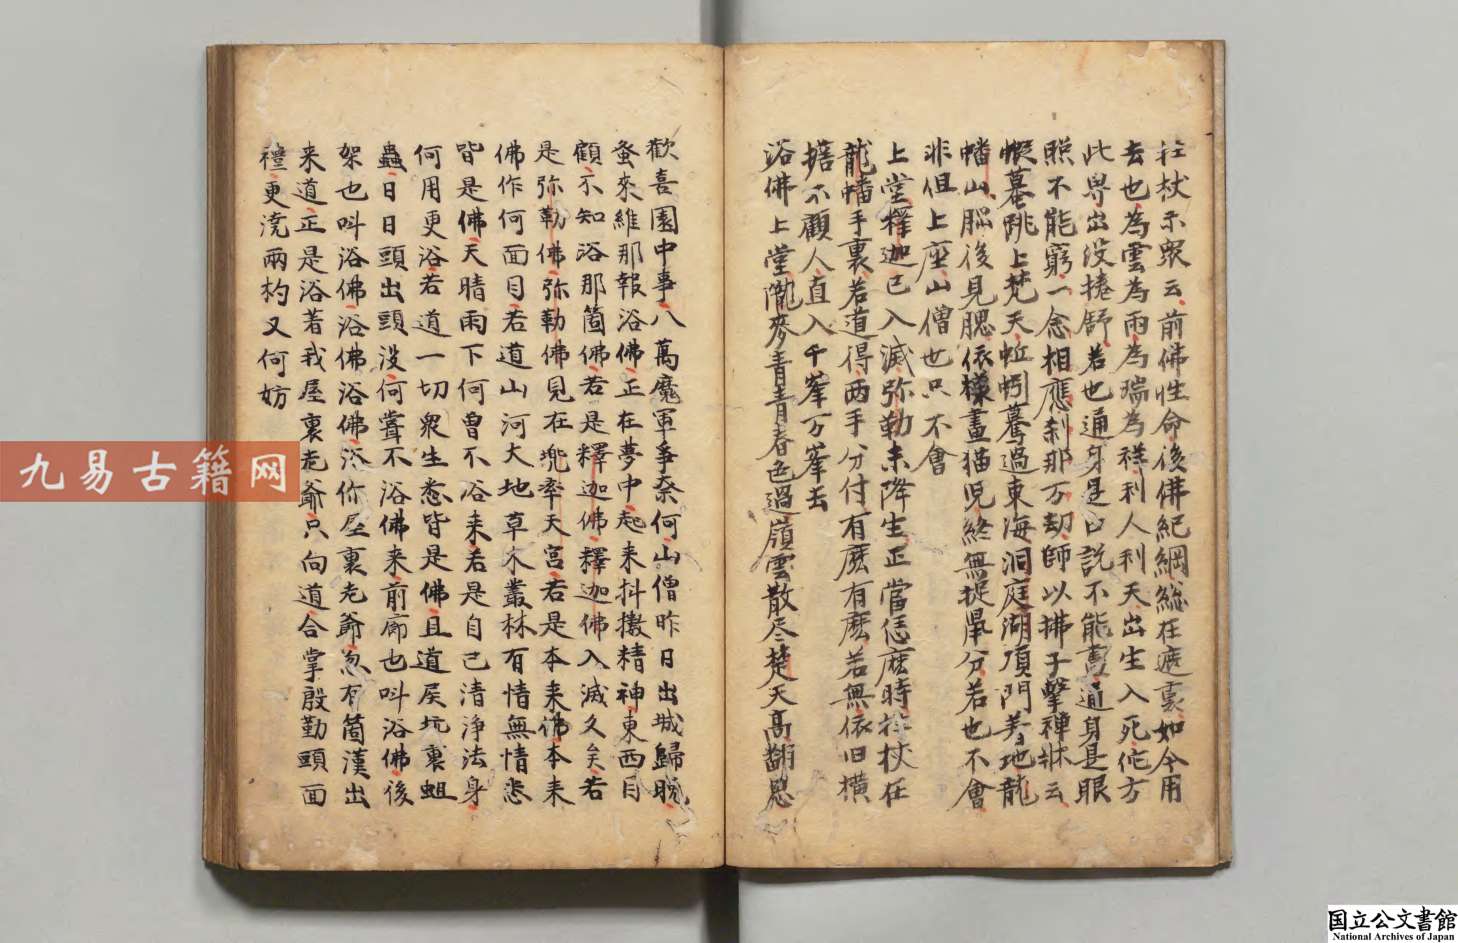 拄杖示眾云前佛性命後佛紀綱總在遮裏如今用
去也為雲為雨為瑞為祥利人利天出生入死佗方
此界出没捲舒若也通身是口說不能盡通身是眼
照不能窮一念相應剎那万劫師以拂子擊禪牀云
蝦蟇跳上梵天蚯蚓驀過東海洞庭湖頂門着地龍
幡山腦後見腮依樣畫猫兒終無捉鼠分若也不會
非但上座山僧也只不會
上堂釋迦已入滅弥勒未降生正當恁麼時拄杖在
龍幡手裏若道得兩手分付有麽有麽若無依旧横
擔不顧人直入千峯万峯去
浴佛上堂隴麥青青春色過嶺雲散尽楚天高翻思
歡喜園中事八萬魔軍爭奈何山僧昨日出城歸晚
蚤來維那報浴佛正在夢中起来抖擻精神東西目
顧不知浴那箇佛若是釋迦佛釋迦佛入滅久矣若
是弥勒佛弥勒佛見在兜率天宮若是本来佛本来
佛作何面目若道山河大地草木叢林有情無情悉
皆是佛天晴雨下何曾不浴来若是自己清淨法身
何用更浴若道一切眾生悉皆是佛且道屎坑裏蛆
蟲日日頭出頭没何嘗不浴佛来前廊也叫浴佛後
架也叫浴佛浴佛浴佛浴你屋裏老爺忽有箇漢出
来道正是浴着我屋裏老爺只向道合掌殷勤頭面
禮更澆兩杓又何妨
九易古籍网
国立公文書館
National Archives of Japan